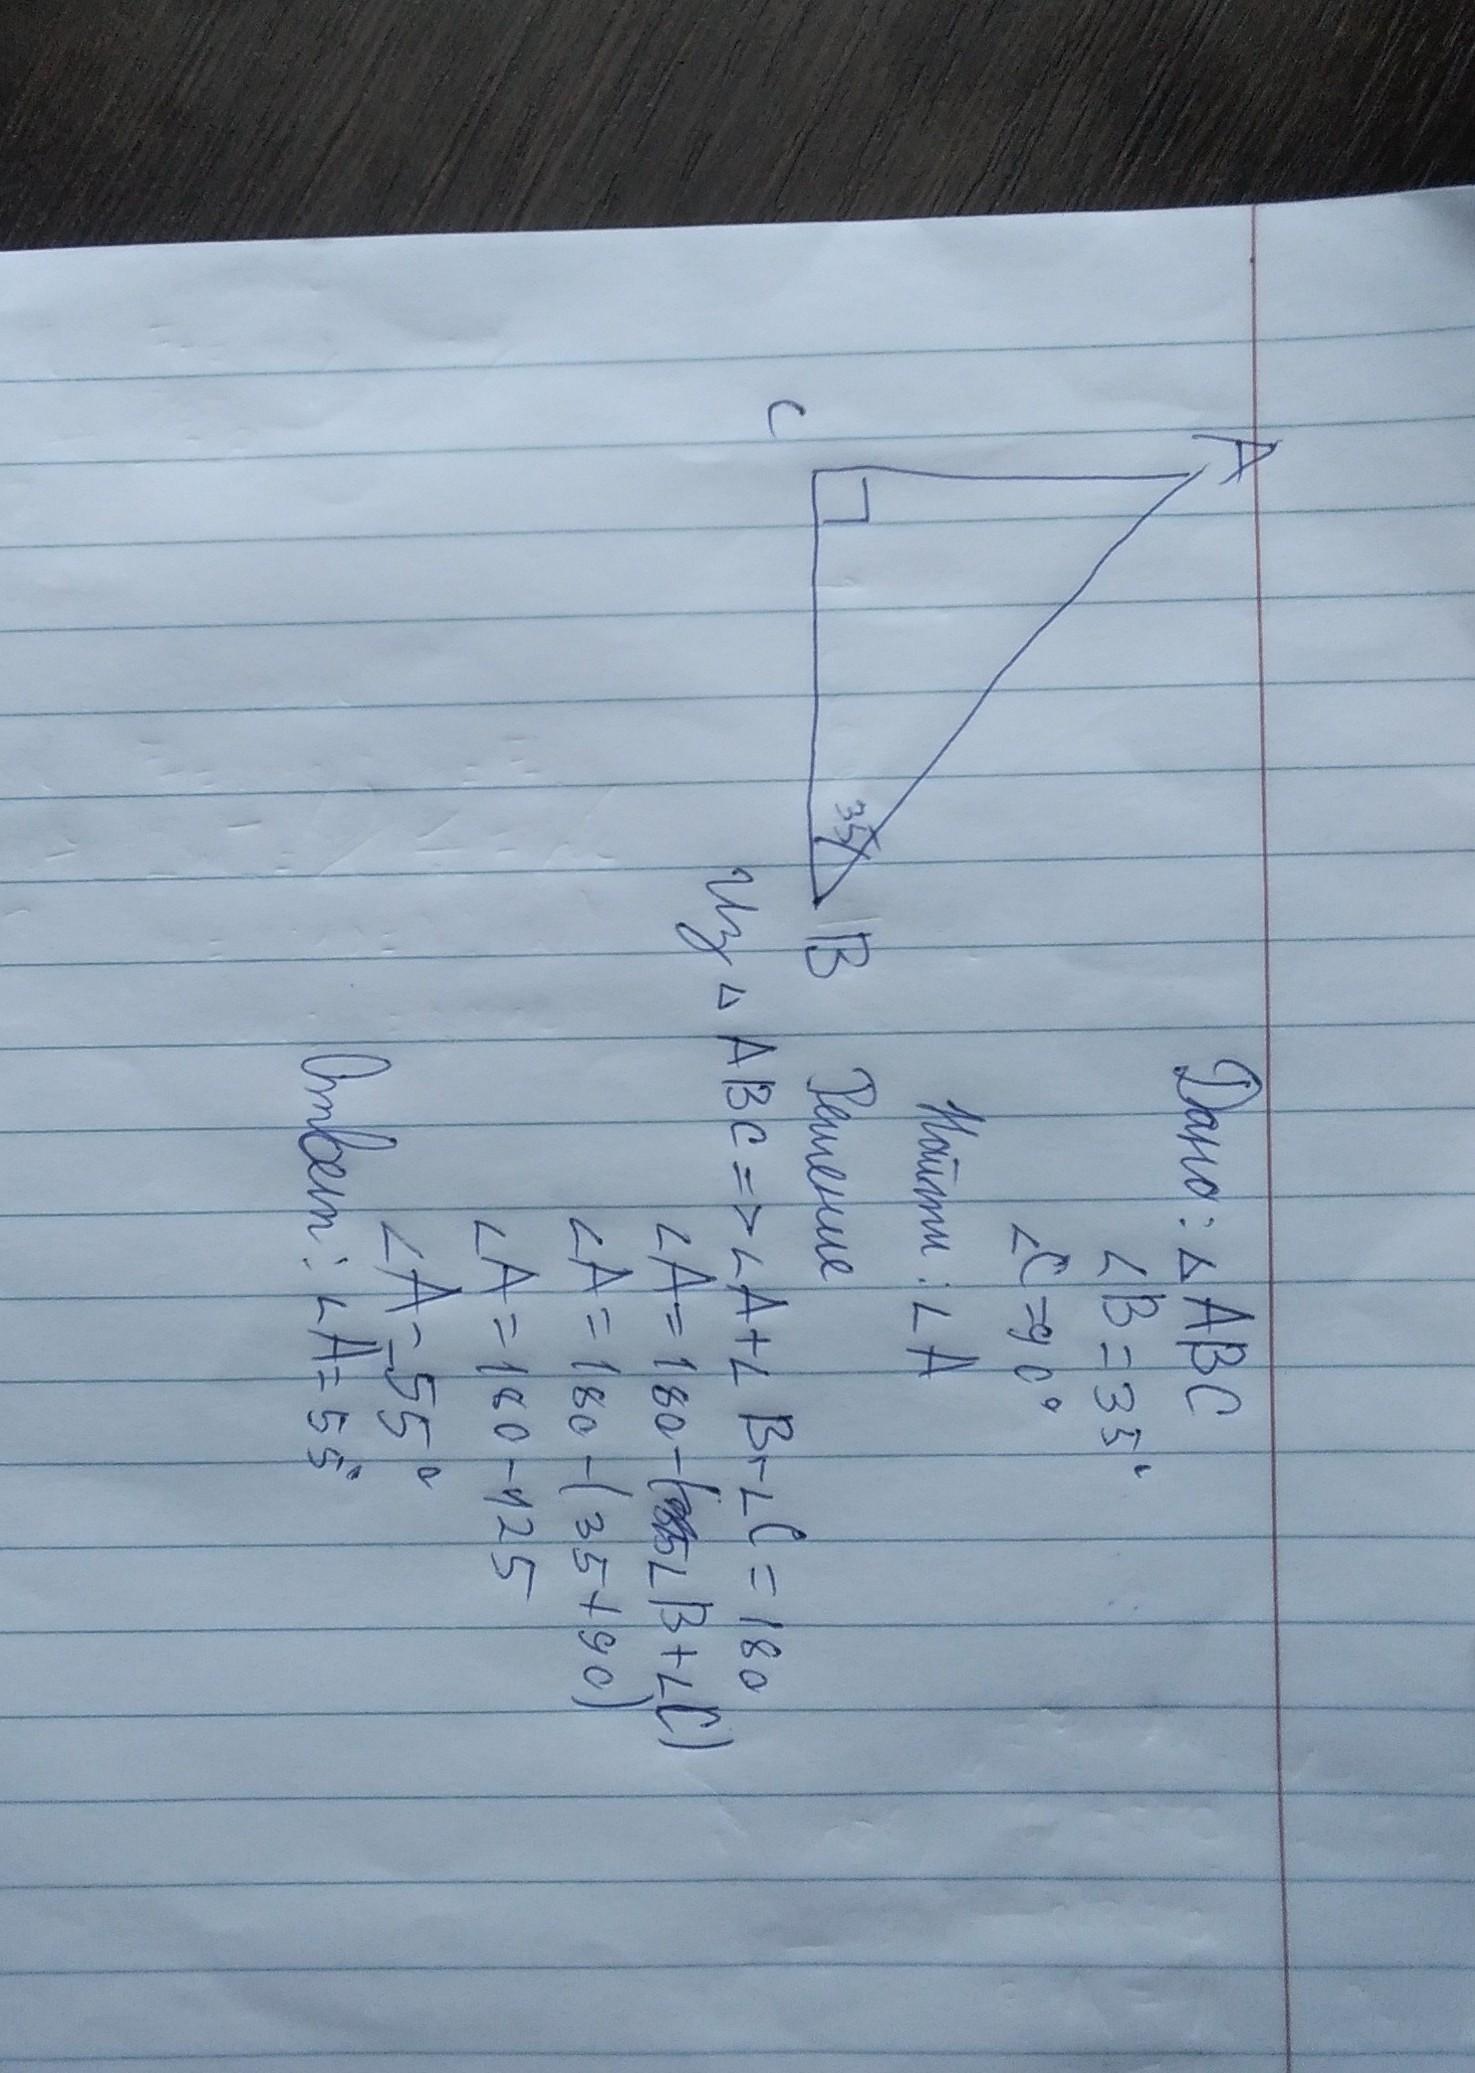 A
C
B
35
Дано: △ABC
∠B=35°
∠C=90°
Найти: ∠A
Решение
Из △ABC=>∠A+∠B+∠C=180
∠A=180-(∠B+∠C)
∠A=180-(35+90)
∠A=180-125
∠A=55°
Ответ: ∠A=55°